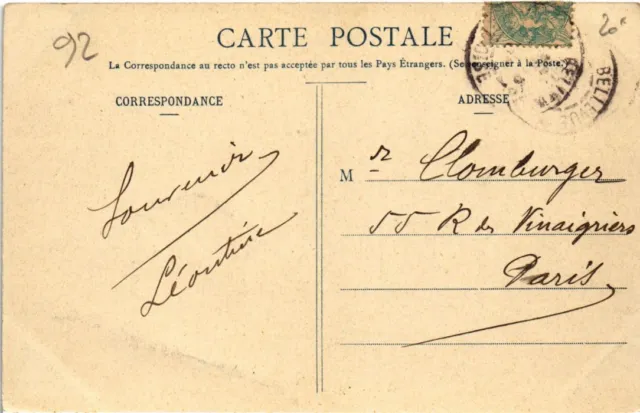 92
20
CARTE POSTALE
La Correspondance au recto n'est pas acceptée par tous les Pays Étrangers. (Se renseigner à la Poste.)
CORRESPONDANCE
ADRESSE
BELLEVUE
Souvenir
Léontine
Mr Clomburger
55 R des Vinaigriers
Paris